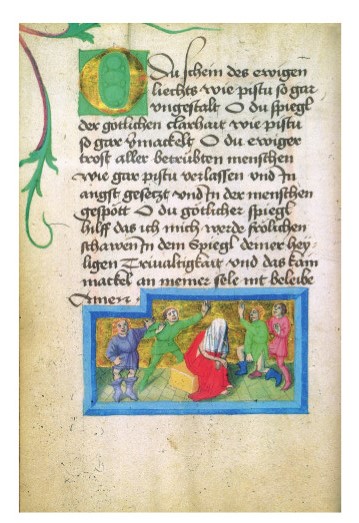 O Du schein des ewigen
liechts wie pistu so gar
vngestalt O du spiegl
der gotlichen clarhait wie pistu
so gar vmackelt O du ewiger
trost aller betrübten menschen
wie gar pistu verlassen vnd In
angst gesetzt vnd In der menschen
gespött O du götlicher spiegl
hilff das ich mich werde frölichen
schawen In dem Spiegl deiner hey-
ligen Triualtigkait vnd das kain
mackel an meiner sele nit beleibe
Amen.